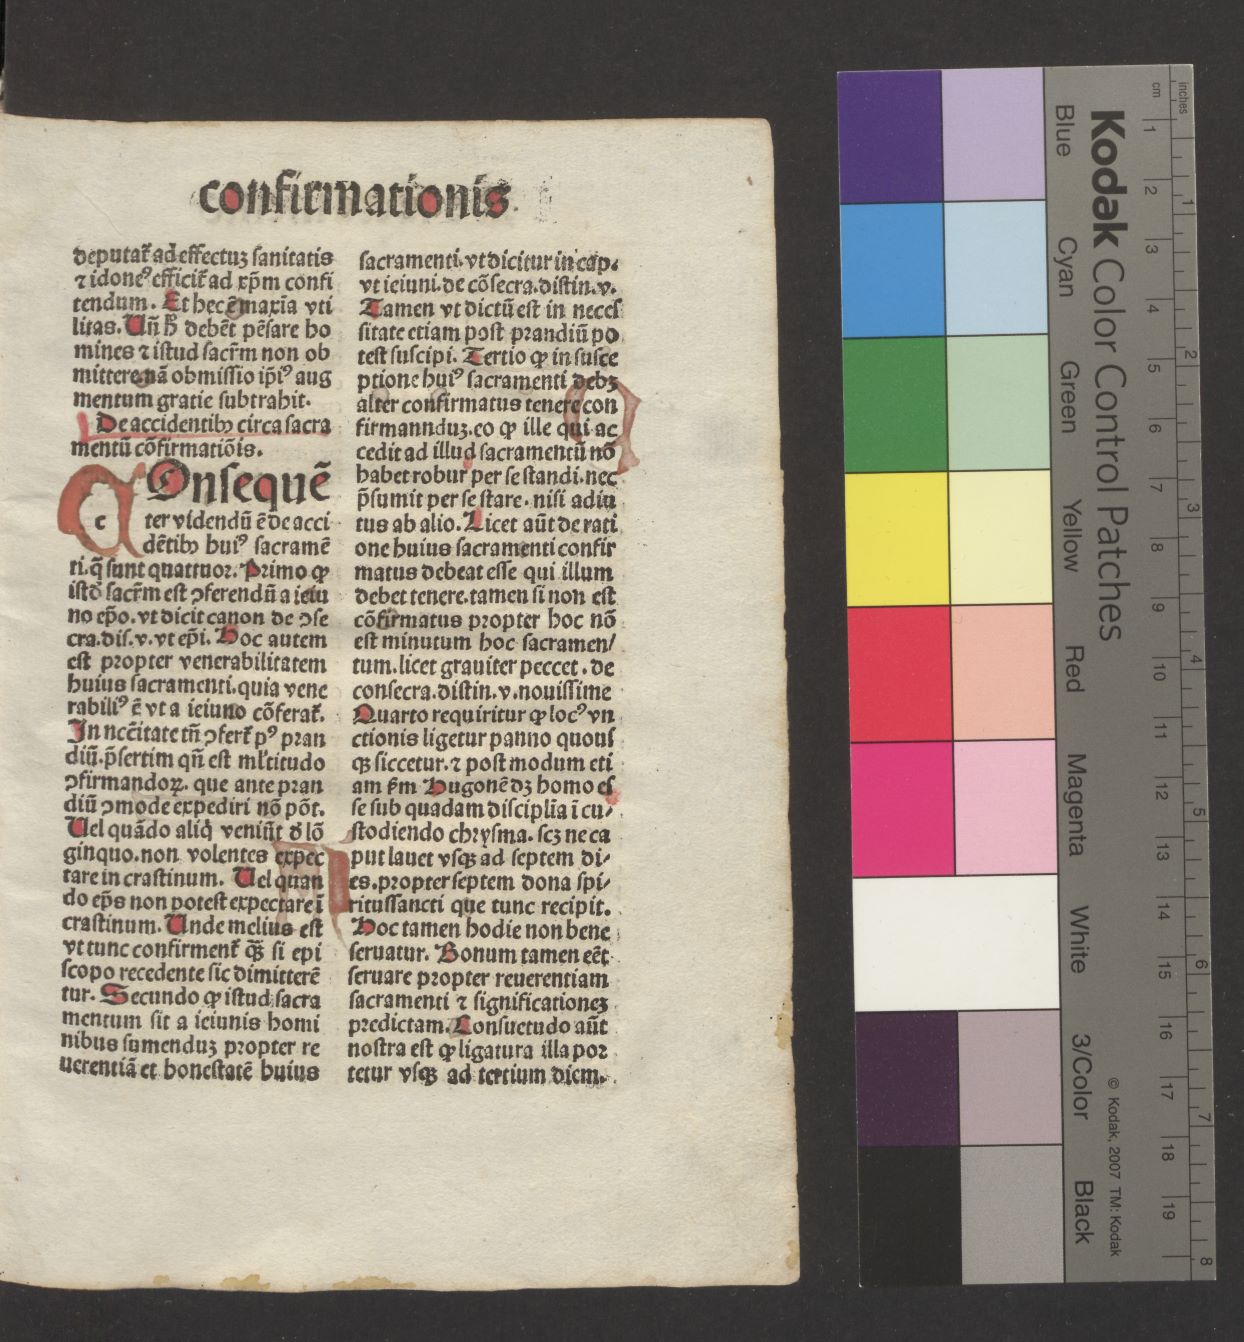 confirmationis
deputat᷑ ad effectuʒ sanitatis
⁊ idoneꝰ efficit᷑ ad xp̄m confi
tendum. Et hec ē maxīa vti
litas. Uñ ħ debēt pēsare ho
mines ⁊ istud sacr̄m non ob
mittere nā obmissio ip̄iꝰ aug
mentum gratie subtrahit.
De accidentibꝰ circa sacra
mentū cōfirmatiōis.
COnsequē
c
ter videndū ē de acci
dētibꝰ huiꝰ sacramē
ti. q̄ sunt quattuor. Primo ꝙ
istd̄ sacr̄m est ꝯferendū a ieiu
no ep̄o. vt dicit canon de ꝯse
cra. dis. v. vt ep̄i. Hoc autem
est propter venerabilitatem
huius sacramenti. quia vene
rabiliꝰ ē vt a ieiuno cōferat᷑.
In nccītate tñ ꝯfert᷑ pꝰ pran
diū. p̄sertim qñ est ml̄titudo
ꝯfirmandoꝝ. que ante pran
diū ꝯmode expediri nō pōt.
Uel quādo aliq̇ veniūt ď lō
ginquo. non volentes expec
tare in crastinum. Uel quan
do ep̄s non potest expectare ī
crastinum. Unde melius est
vt tunc confirment᷑ qȝ̄ si epi
scopo recedente sic dimitterē
tur. Secundo ꝙ istud sacra
mentum sit a ieiunis homi
nibus sumenduʒ propter re
uerentiā et honestatē huius
sacramenti. vt dicitur in cap.
vt ieiuni. de cōsecra. distin. v.
Tamen vt dictū est in necess
sitate etiam post prandiū po
test suscipi. Tertio ꝙ in susce
ptione huiꝰ sacramenti debʒ
alter confirmatus tenere con
firmannduʒ. eo ꝙ ille qui ac
cedit ad illud sacramentū nō
habet robur per se standi. nec
p̄sumit per se stare. nisi adiu
tus ab alio. Licet aūt de rati
one huius sacramenti confir
matus debeat esse qui illum
debet tenere. tamen si non est
cōfirmatus propter hoc nō
est minutum hoc sacramen/
tum. licet grauiter peccet. de
consecra. distin. v. nouissime
Quarto requiritur ꝙ locꝰ vn
ctionis ligetur panno quous
qȝ siccetur. ⁊ post modum eti
am ẜm Hugonē dʒ homo es
se sub quadam disciplīa ī cu/
stodiendo chrysma. scʒ ne ca
put lauet vsqȝ ad septem di/
es. propter septem dona spi/
ritussancti que tunc recipit.
Hoc tamen hodie non bene
seruatur. Bonum tamen eēt
seruare propter reuerentiam
sacramenti ⁊ significationeʒ
predictam. Consuetudo aūt
nostra est ꝙ ligatura illa por
tetur vsqȝ ad tertium diem.
Kodak Color Control Patches
Blue
Cyan
Green
Yellow
Red
Magenta
White
3/Color
Black
© Kodak, 2007 TM: Kodak
cm 1 2 3 4 5 6 7 8 9 10 11 12 13 14 15 16 17 18 19
inches 1 2 3 4 5 6 7 8